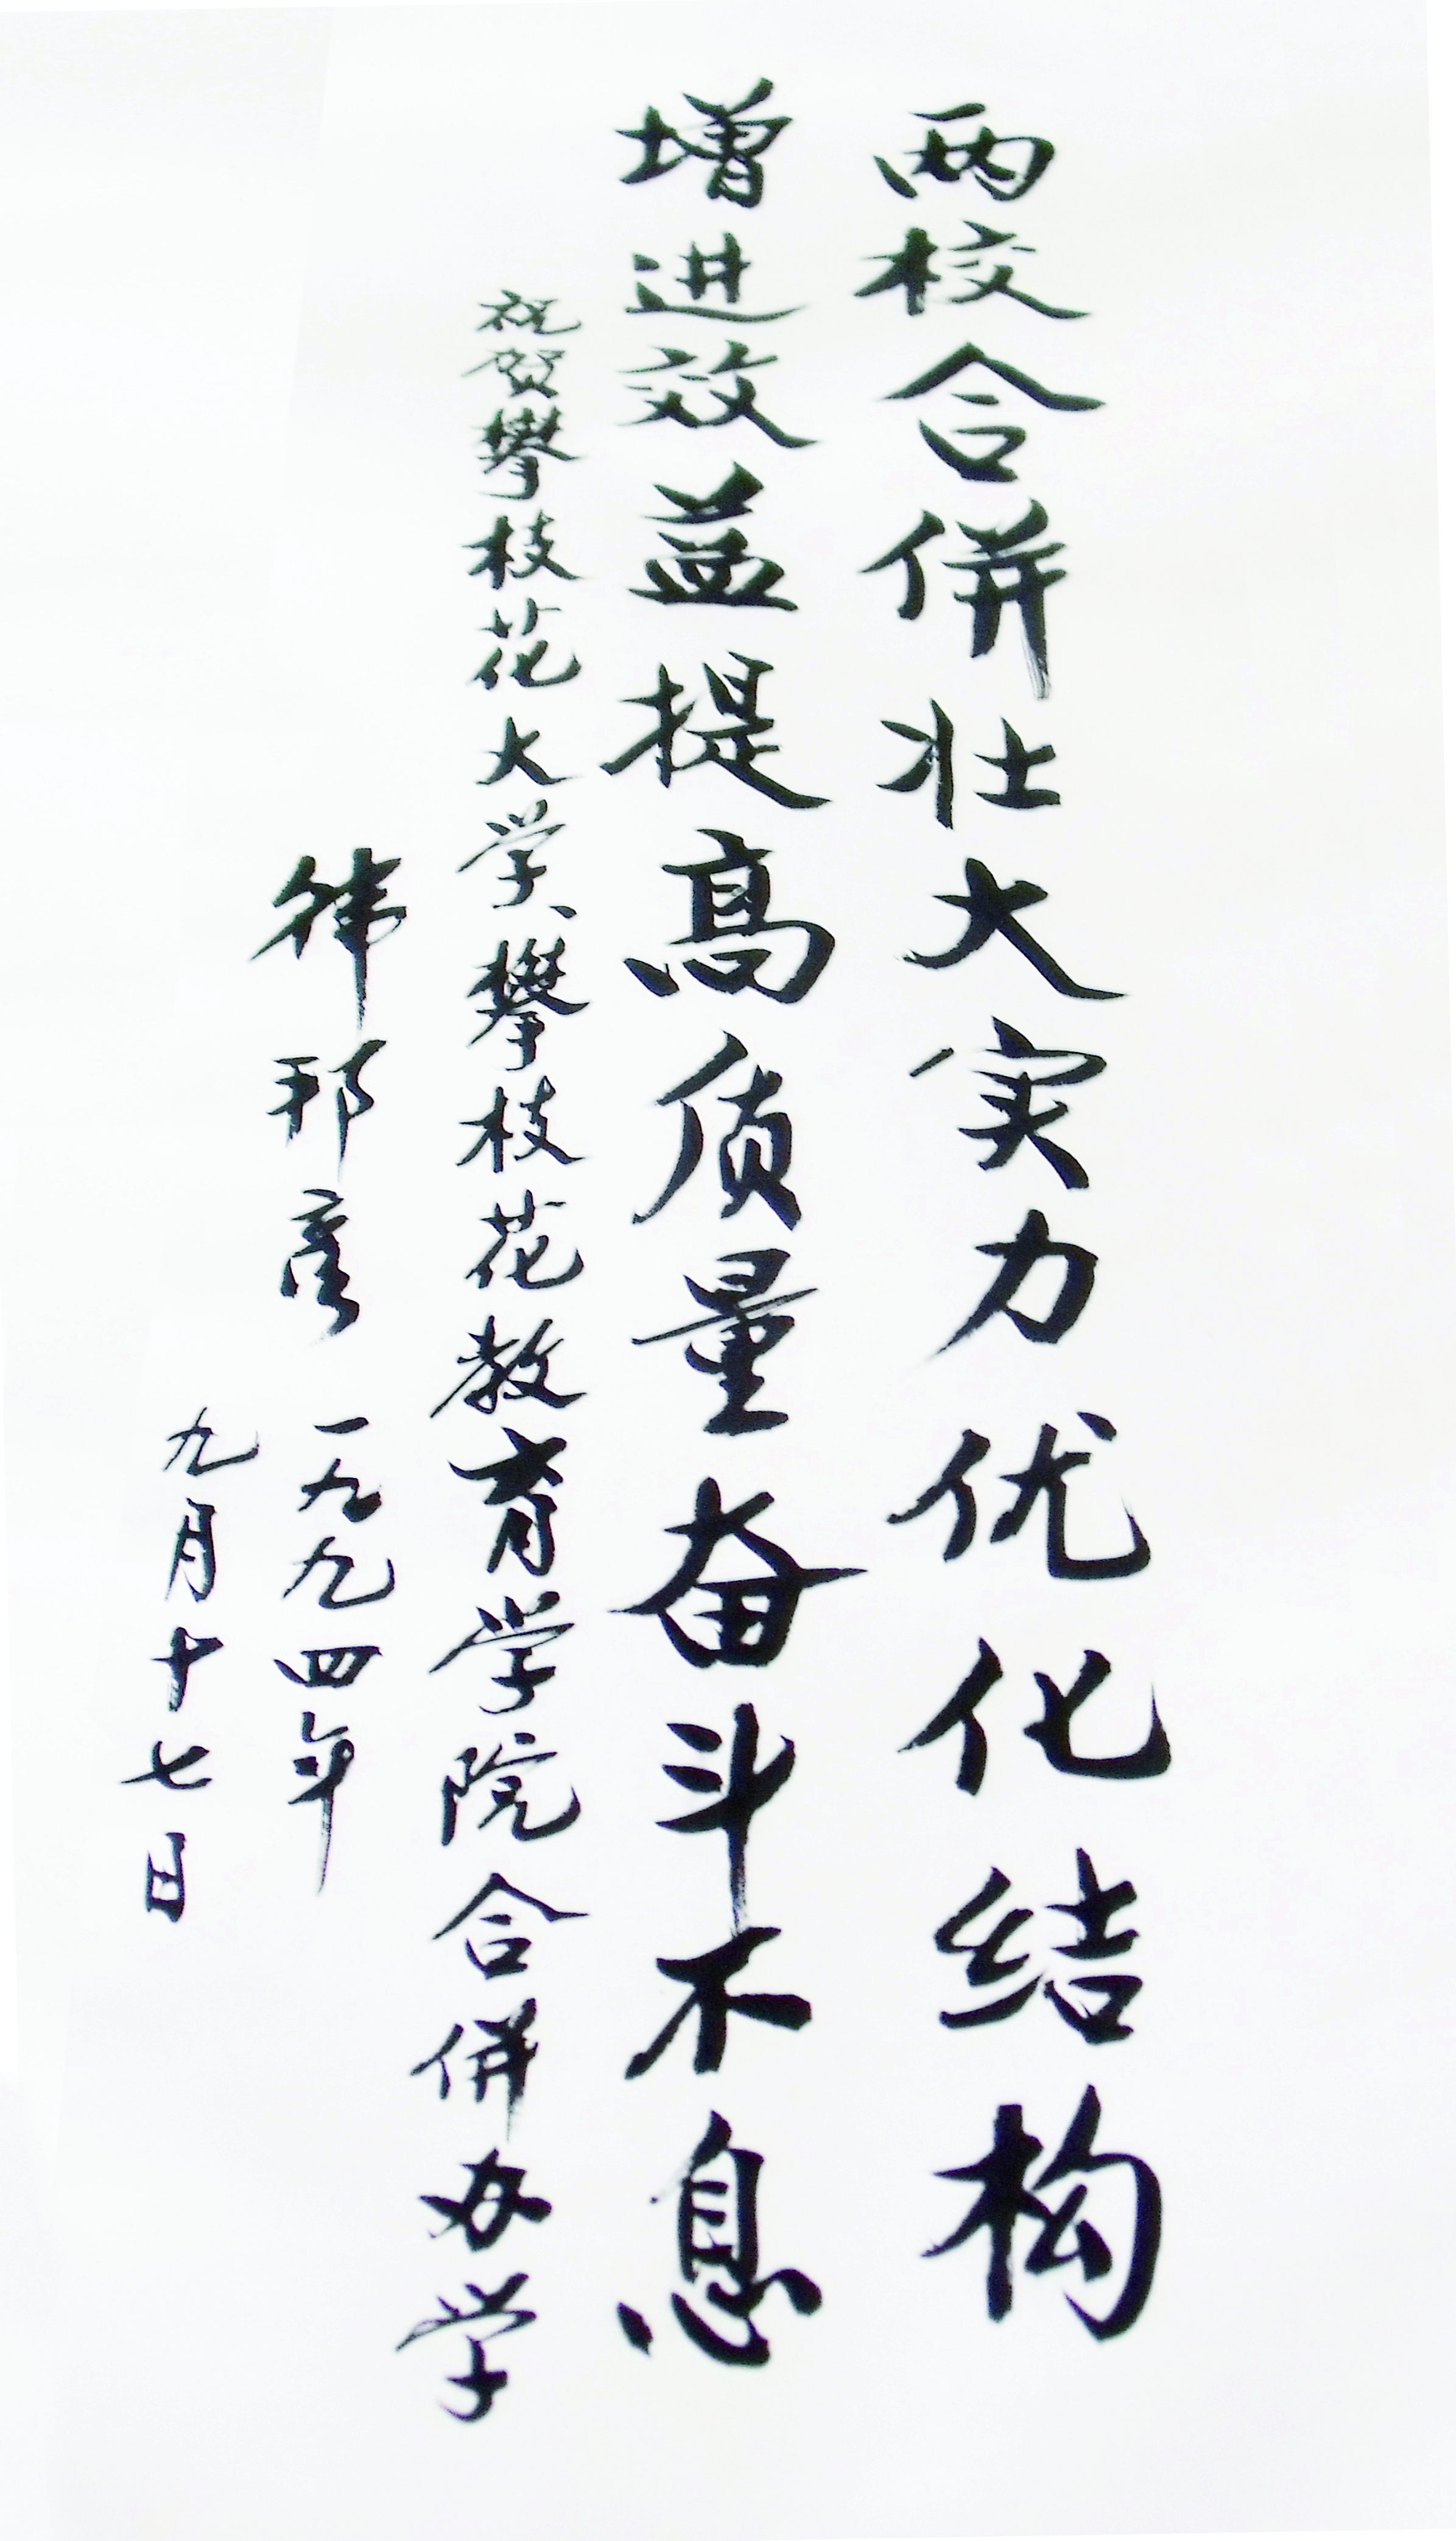 两校合併壮大实力优化结构
增进效益提高质量奋斗不息
祝贺攀枝花大学、攀枝花教育学院合併办学
韩邦彦 一九九四年
九月十七日